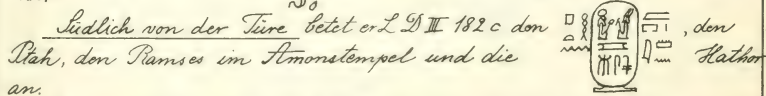 Südlich von der Türe betet er L D III 182 c den , den
Ptah, den Ramses im Amonstempel und die Hathor
an.